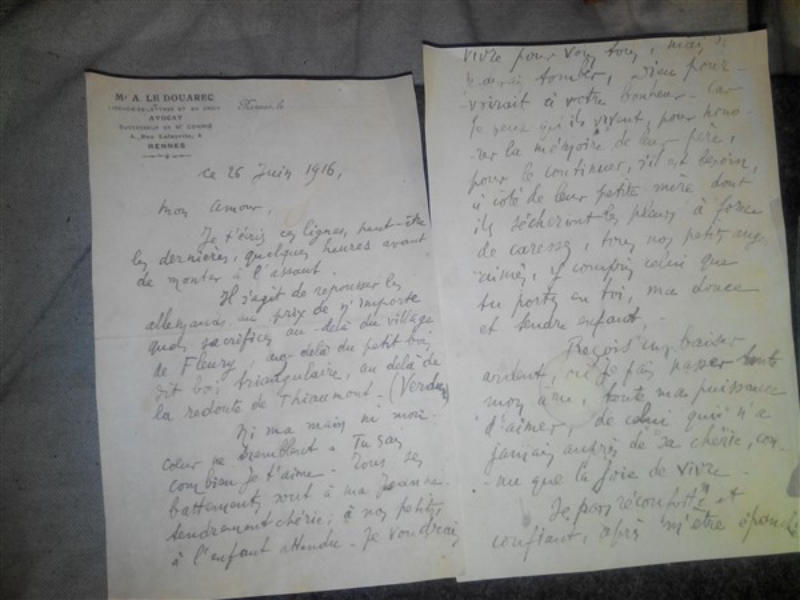 Mᵉ A. LE DOUAREC
LICENCIÉ ÈS-LETTRES ET EN DROIT
AVOCAT
SUCCESSEUR DE Mᵉ
4, Rue Lafayette, 4
RENNES
Rennes, le
ce 26 Juin 1916,
mon amour,
Je t'écris ces lignes, peut-être
les dernières, quelques heures avant
de monter à l'assaut.
Il s'agit de repousser les
allemands au prix de n'importe
quels sacrifices au-delà du village
de Fleury, au-delà du petit bois
dit bois triangulaire, au delà de
la redoute de Thiaumont - (Verdun)
Ni ma main ni mon
cœur ne tremblent. Tu sais
combien je t'aime - Tous ses
battements sont à ma Jeanne
tendrement chérie, à nos petits,
à l'enfant attendu - Je voudrais
vivre pour vous tous, mais si
je devais tomber, Dieu pour-
voirait à votre bonheur - Car
je veux qu'ils vivent, pour hono-
rer la mémoire de leur père,
pour le continuer, s'il est besoin,
à côté de leur petite mère dont
ils sécheront les pleurs à force
de caresses, tous nos petits anges
aimés, y compris celui que
tu portes en toi, ma douce
et tendre enfant.
Reçois un baiser
ardent, où je fais passer toute
mon âme, toute ma puissance
d'aimer, de celui qui n'a
jamais auprès de sa chérie, con-
nu que la joie de vivre -
Je pars réconforté et
confiant, après m'être épanché